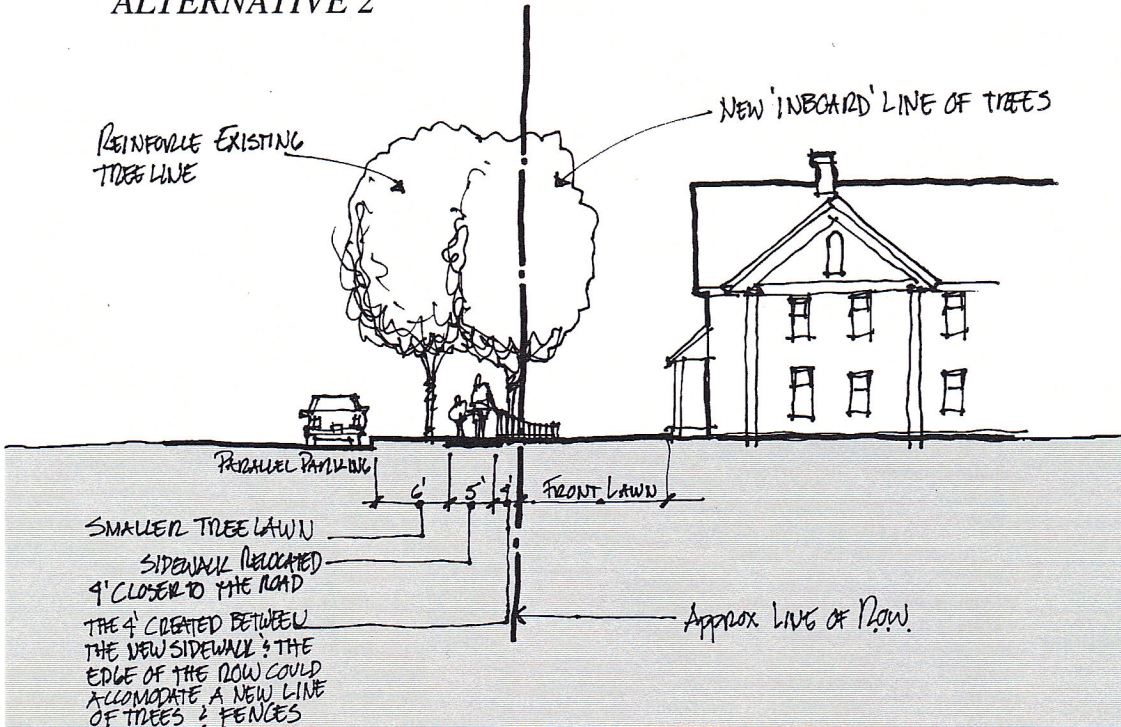 ALTERNATIVE 2
NEW 'INBOARD' LINE OF TREES
REINFORCE EXISTING
TREE LINE
PARALLEL PARKING
6' 5' 4' FRONT LAWN
SMALLER TREE LAWN
SIDEWALK RELOCATED
4' CLOSER TO THE ROAD
THE 4' CREATED BETWEEN
THE NEW SIDEWALK & THE
EDGE OF THE ROW COULD
ACCOMODATE A NEW LINE
OF TREES & FENCES
Approx LINE OF R.O.W.